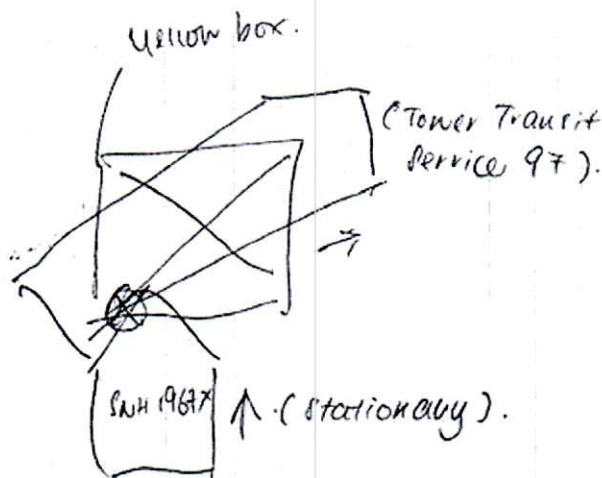 Yellow box.
(Tower Transit
Service 97).
SNH 1967X
(stationary).